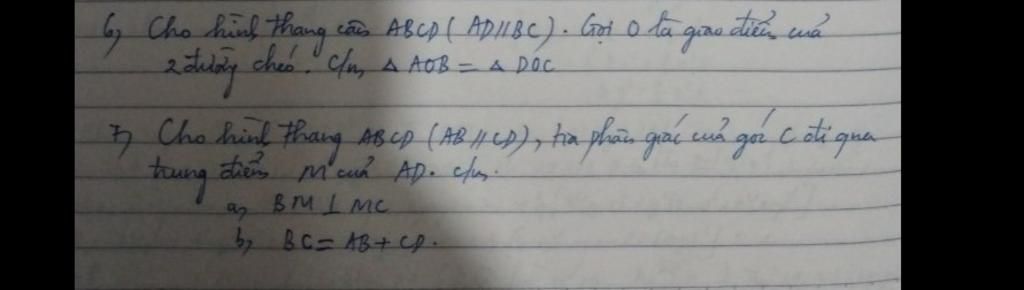 6, Cho hình thang cân ABCD ( AD//BC ). Gọi O là giao điểm của
2 đường chéo. C/m △ AOB = △ DOC
7, Cho hình thang ABCD (AB // CD), tia phân giác của góc C đi qua
trung điểm M của AD. c/m.
a, BM ⊥ MC
b, BC = AB + CD.